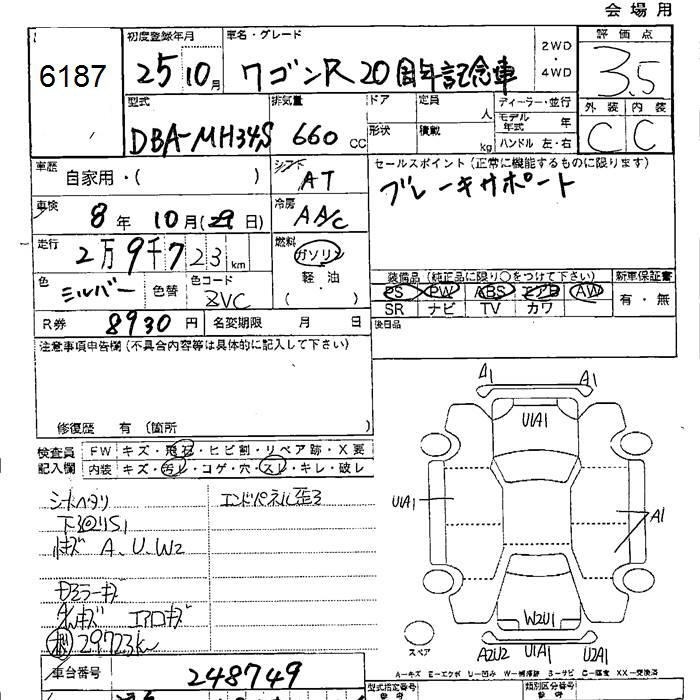 会場用
6187
初度登録年月
25 10月
車名・グレード
ワゴンR 20周年記念車
2WD
・
4WD
評価点
3.5
型式
DBA-MH34S
排気量
660 CC
ドア
定員
人
形状
積載
kg
ディーラー・並行
モデル年式 年
ハンドル 左・右
外装 内装
C C
車歴
自家用・( )
シフト
AT
セールスポイント(正常に機能するものに限ります)
ブレーキサポート
車検
8年 10月(29日)
冷房
AA/C
走行
2万9千723km
燃料
ガソリン
軽・油
・( )
色
シルバー
色替
色コード
装備品(純正品に限り○をつけて下さい)
新車保証書
PS PW ABS エアB AW
有・無
SR ナビ TV カワ
R券 8930円
名変期限 月 日
後日品
注意事項申告欄(不具合内容等は具体的に記入して下さい)
修復歴 有(箇所 )
検査員記入欄
FW キズ・飛石・ヒビ割・リペア跡・X要
内装 キズ・汚レ・コゲ・穴・スレ・キレ・破レ
シートヘタリ
エンドパネル歪3
A、U、W2
エアロキズ
29723km
A1 A1
U1A1
U1A1
A1
W2U1
スペア
A2U2 U1A1 U2A1
A-キズ E-エクボ U-凹み W-補修跡 S-サビ C-腐食 XX-交換済
車台番号
248749
型式指定番号
類別区分番号